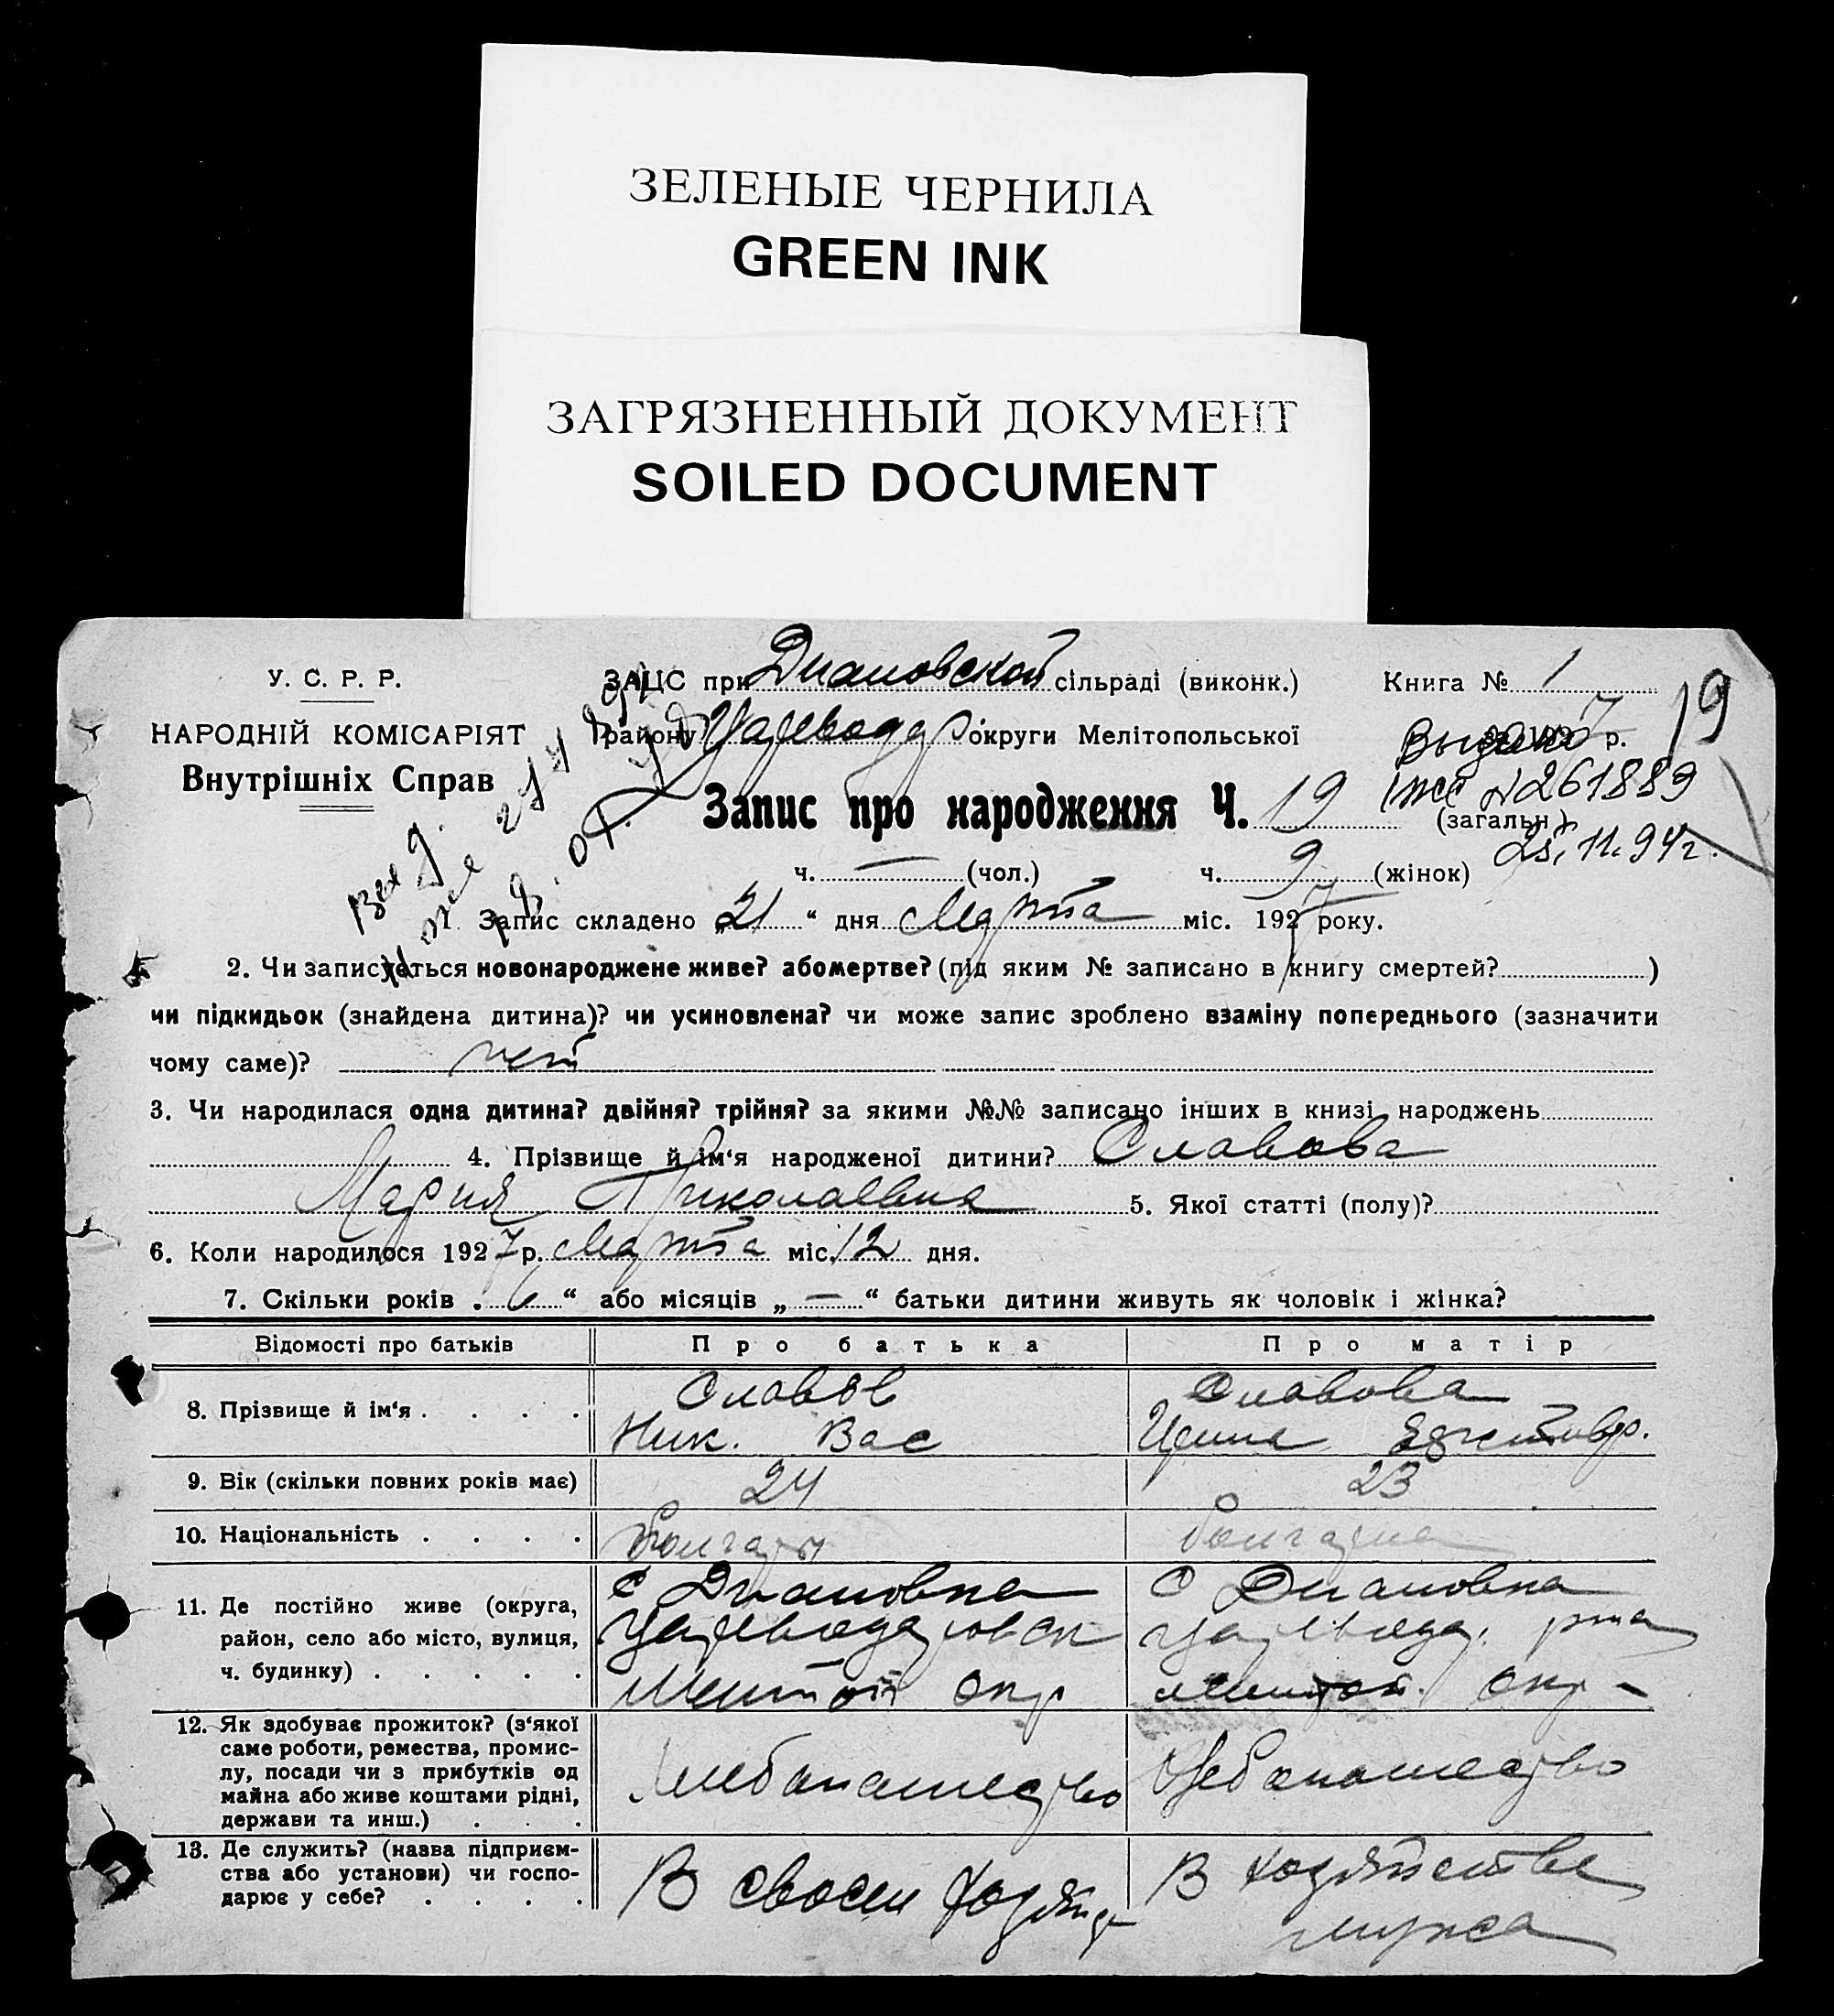 ЗЕЛЕНЫЕ ЧЕРНИЛА
GREEN INK
ЗАГРЯЗНЕННЫЙ ДОКУМЕНТ
SOILED DOCUMENT
У. С. Р. Р.
НАРОДНІЙ КОМІСАРІЯТ
Внутрішніх Справ
ЗАЦС при Диановской сільраді (виконк.) Книга № 1
19
району Царевода р округи Мелітопольської 192 7 р.
Выдано
№ 261889
Запис про народження Ч. 19 (загальн.)
25.11.94г.
ч. — (чол.) ч. 9 (жінок)
1. Запис складено „21“ дня Марта міс. 1927 року.
2. Чи записується новонароджене живе? або мертве? (під яким № записано в книгу смертей? )
чи підкидьок (знайдена дитина)? чи усиновлена? чи може запис зроблено взаміну попереднього (зазначити
чому саме)? нет
3. Чи народилася одна дитина? двійня? трійня? за якими №№ записано інших в книзі народжень
4. Прізвище й ім‘я народженої дитини? Славова
Мария Николаевна 5. Якої статті (полу)?
6. Коли народилося 192 7 р. Марта міс. 12 дня.
7. Скільки років „ 6 “ або місяців „ — “ батьки дитини живуть як чоловік і жінка?
Відомості про батьків Про батька Про матір
8. Прізвище й ім‘я . . . . Славов Славова
Ник. Вас
9. Вік (скільки повних років має) 24 23
10. Національність . . . . болгары болгарка
11. Де постійно живе (округа, район, село або місто, вулиця, ч. будинку) . . . . .
с Диановка
Цареводаровск
Мелитоп окр
с Диановка
Царевода. рна
мелитоп. окр -
12. Як здобуває прожиток? (з‘якої саме роботи, ремества, промислу, посади чи з прибутків од майна або живе коштами рідні, держави та инш.) . . .
Хлебопашество
Хлебопашество
13. Де служить? (назва підприємства або установи) чи господарює у себе? . . . .
В своем хозяйс
В хозяйстве
мужа